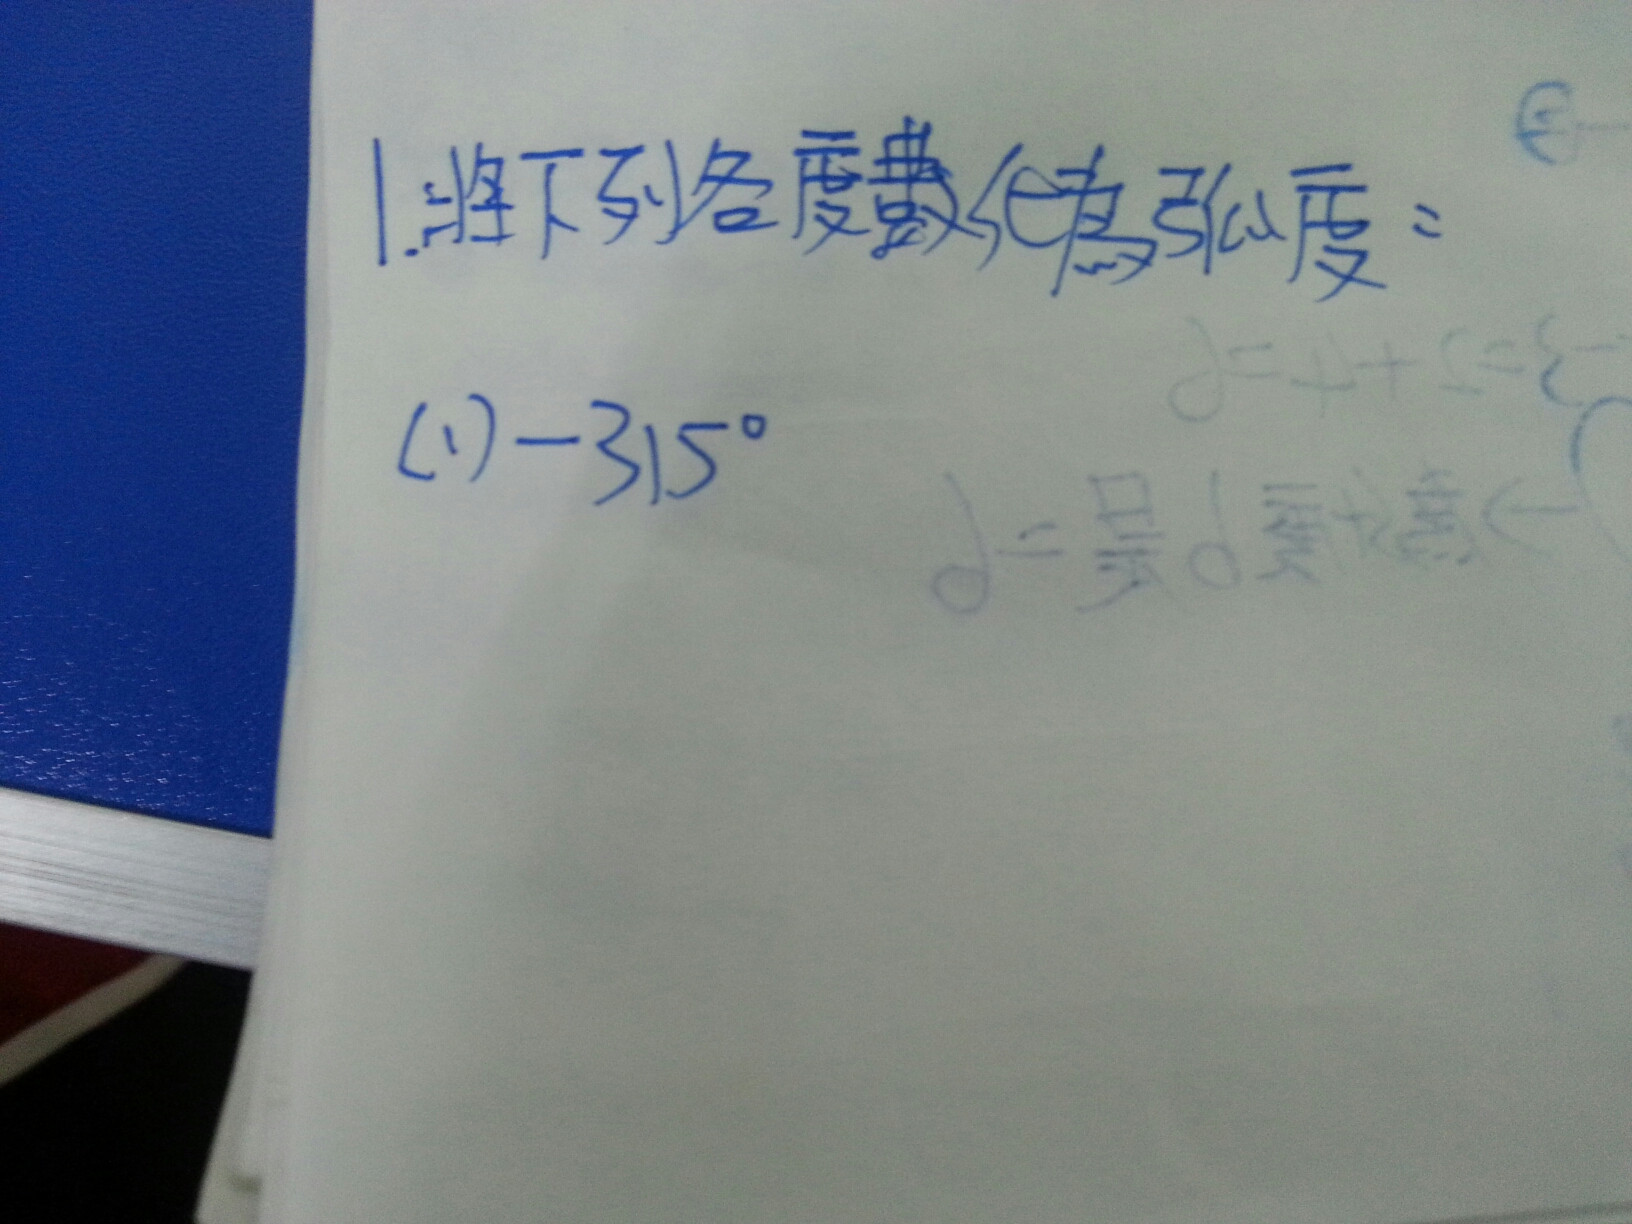 1.將下列各度數化為弧度:
(1)-315°